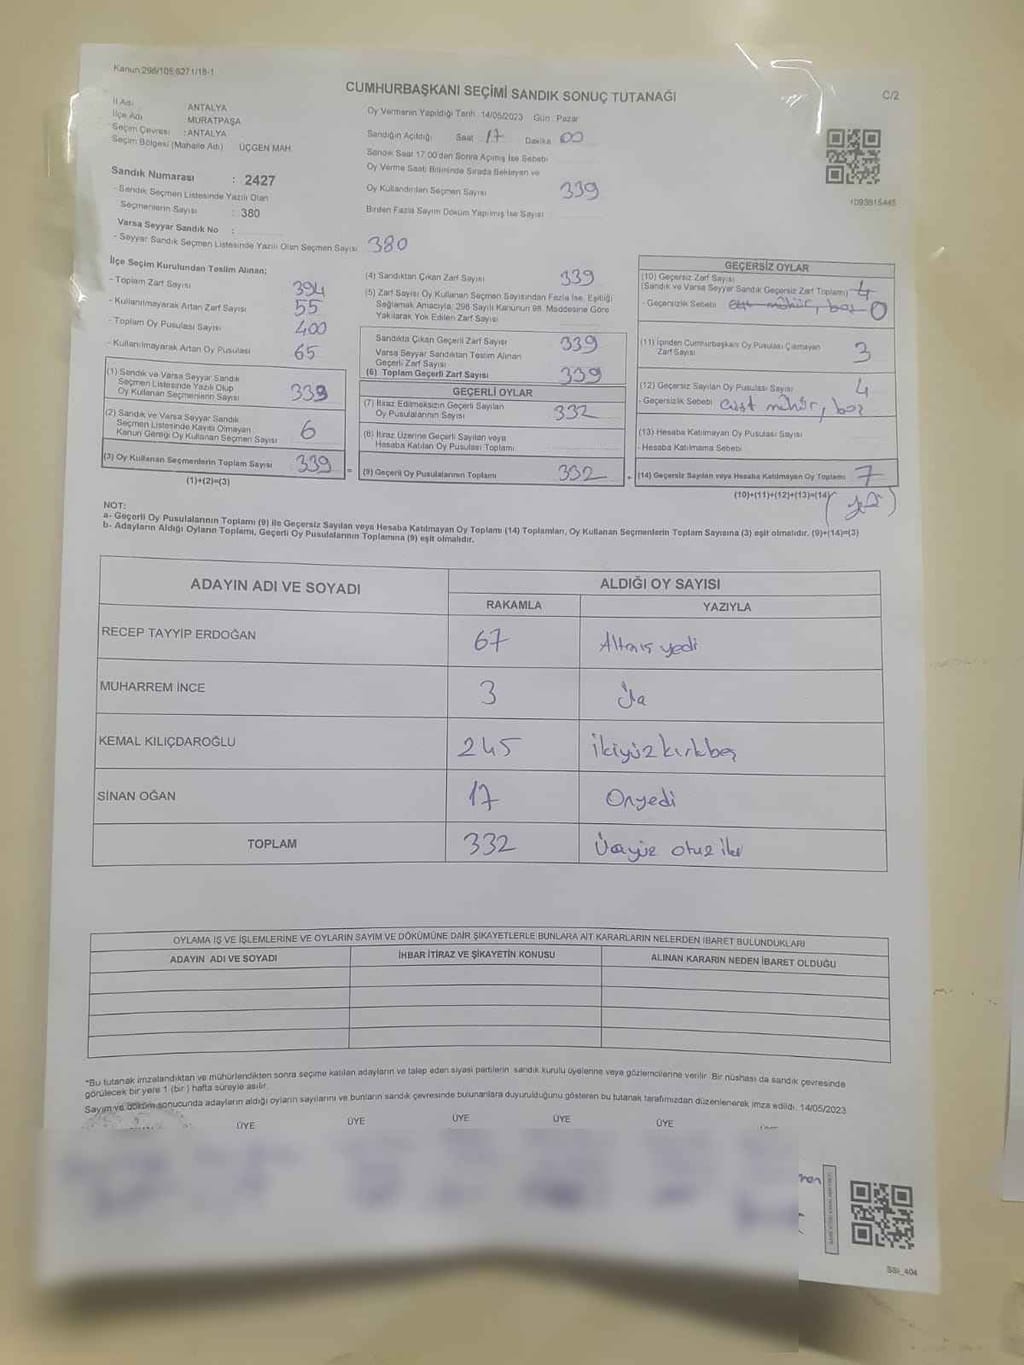 Kanun:298/105,6271/18-1
CUMHURBAŞKANI SEÇİMİ SANDIK SONUÇ TUTANAĞI
C/2
İl Adı : ANTALYA
İlçe Adı : MURATPAŞA
Seçim Çevresi : ANTALYA
Seçim Bölgesi (Mahalle Adı) ÜÇGEN MAH.
Sandık Numarası : 2427
- Sandık Seçmen Listesinde Yazılı Olan
Seçmenlerin Sayısı : 380
Varsa Seyyar Sandık No :
- Seyyar Sandık Seçmen Listesinde Yazılı Olan Seçmen Sayısı 380
Oy Vermenin Yapıldığı Tarih 14/05/2023 Gün : Pazar
Sandığın Açıldığı Saat 17 Dakika 00
Sandık Saat 17.00'den Sonra Açılmış İse Sebebi
Oy Verme Saati Bitiminde Sırada Bekleyen ve
Oy Kullandırılan Seçmen Sayısı 339
Birden Fazla Sayım Döküm Yapılmış İse Sayısı
1093815445
İlçe Seçim Kurulundan Teslim Alınan;
- Toplam Zarf Sayısı 394
- Kullanılmayarak Artan Zarf Sayısı 55
- Toplam Oy Pusulası Sayısı 400
- Kullanılmayarak Artan Oy Pusulası 65
(1) Sandık ve Varsa Seyyar Sandık
Seçmen Listesinde Yazılı Olup
Oy Kullanan Seçmenlerin Sayısı 339
(2) Sandık ve Varsa Seyyar Sandık
Seçmen Listesinde Kaydı Olmayan
Kanun Gereği Oy Kullanan Seçmen Sayısı 6
(3) Oy Kullanan Seçmenlerin Toplam Sayısı 339
(1)+(2)=(3)
(4) Sandıktan Çıkan Zarf Sayısı 339
(5) Zarf Sayısı Oy Kullanan Seçmen Sayısından Fazla İse, Eşitliği
Sağlamak Amacıyla, 298 Sayılı Kanunun 98. Maddesine Göre
Yakılarak Yok Edilen Zarf Sayısı
Sandıkta Çıkan Geçerli Zarf Sayısı 339
Varsa Seyyar Sandıktan Teslim Alınan
Geçerli Zarf Sayısı
(6) Toplam Geçerli Zarf Sayısı 339
GEÇERLİ OYLAR
(7) İtiraz Edilmeksizin Geçerli Sayılan
Oy Pusulalarının Sayısı 332
(8) İtiraz Üzerine Geçerli Sayılan veya
Hesaba Katılan Oy Pusulası Toplamı
= (9) Geçerli Oy Pusulalarının Toplamı 332
GEÇERSİZ OYLAR
(10) Geçersiz Zarf Sayısı
(Sandık ve Varsa Seyyar Sandık Geçersiz Zarf Toplamı) 4
- Geçersizlik Sebebi mühür, boş 0
(11) İçinden Cumhurbaşkanı Oy Pusulası Çıkmayan
Zarf Sayısı 3
(12) Geçersiz Sayılan Oy Pusulası Sayısı 4
- Geçersizlik Sebebi çift mühür, boş
(13) Hesaba Katılmayan Oy Pusulası Sayısı
- Hesaba Katılmama Sebebi
+ (14) Geçersiz Sayılan veya Hesaba Katılmayan Oy Toplamı 7
(10)+(11)+(12)+(13)=(14)
(yedi)
NOT:
a- Geçerli Oy Pusulalarının Toplamı (9) ile Geçersiz Sayılan veya Hesaba Katılmayan Oy Toplamı (14) Toplamları, Oy Kullanan Seçmenlerin Toplam Sayısına (3) eşit olmalıdır. (9)+(14)=(3)
b- Adayların Aldığı Oyların Toplamı, Geçerli Oy Pusulalarının Toplamına (9) eşit olmalıdır.
ADAYIN ADI VE SOYADI ALDIĞI OY SAYISI
RAKAMLA YAZIYLA
RECEP TAYYİP ERDOĞAN 67 Altmış yedi
MUHARREM İNCE 3 Üç
KEMAL KILIÇDAROĞLU 245 ikiyüzkırkbeş
SİNAN OĞAN 17 Onyedi
TOPLAM 332 Üçyüz otuz iki
OYLAMA İŞ VE İŞLEMLERİNE VE OYLARIN SAYIM VE DÖKÜMÜNE DAİR ŞİKAYETLERLE BUNLARA AİT KARARLARIN NELERDEN İBARET BULUNDUKLARI
ADAYIN ADI VE SOYADI İHBAR İTİRAZ VE ŞİKAYETİN KONUSU ALINAN KARARIN NEDEN İBARET OLDUĞU
*Bu tutanak imzalandıktan ve mühürlendikten sonra seçime katılan adayların ve talep eden siyasi partilerin sandık kurulu üyelerine veya gözlemcilerine verilir. Bir nüshası da sandık çevresinde
görülecek bir yere 1 (bir) hafta süreyle asılır.
Sayım ve döküm sonucunda adayların aldığı oyların sayılarını ve bunların sandık çevresinde bulunanlara duyurulduğunu gösteren bu tutanak tarafımızdan düzenlenerek imza edildi. 14/05/2023
ÜYE ÜYE ÜYE ÜYE ÜYE
SSI_404